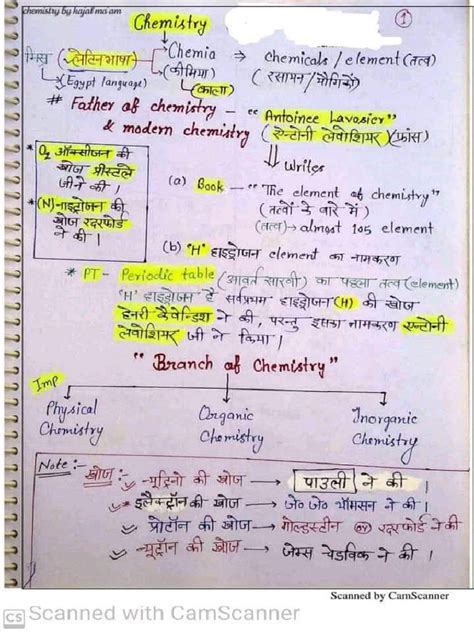 Chemistry by kajal ma'am
①
Chemistry
मिस्र (लैटिन भाषा) → Chemia ⇒ Chemicals / element (तत्व)
(Egypt language) → (कीमिया) (रसायन / यौगिकों)
(काला)
# Father of chemistry - "Antoinee Lavosier"
& modern chemistry (एन्टोनी लेवोशियर) (फ्रांस)
* O₂ ऑक्सीजन की
खोज प्रीस्टले
जीने की ।
* (N)-नाइट्रोजन की
खोज रदरफोर्ड
ने की ।
⇓ Writes
(a) Book - "The element of chemistry"
(तत्वों के बारे में)
(तत्व) → almost 105 element
(b) 'H' हाइड्रोजन element का नामकरण
* PT - Periodic table (आवर्त सारणी) का पहला तत्व (element)
'H' हाइड्रोजन है सर्वप्रथम हाइड्रोजन (H) की खोज
हेनरी कैवेन्डिश ने की, परन्तु इसका नामकरण एन्टोनी
लेवोशियर जी ने किया।
"Branch of Chemistry"
Imp
Physical Chemistry
Organic Chemistry
Inorganic Chemistry
Note:-
खोज :- न्यूट्रिनो की खोज → पाउली ने की ।
इलैक्ट्रॉन की खोज → जे० जे० थॉमसन ने की ।
प्रोटॉन की खोज → गोल्डस्टीन or रदरफोर्ड ने की
न्यूट्रॉन की खोज → जेम्स चैडविक ने की ।
Scanned by CamScanner
CS Scanned with CamScanner